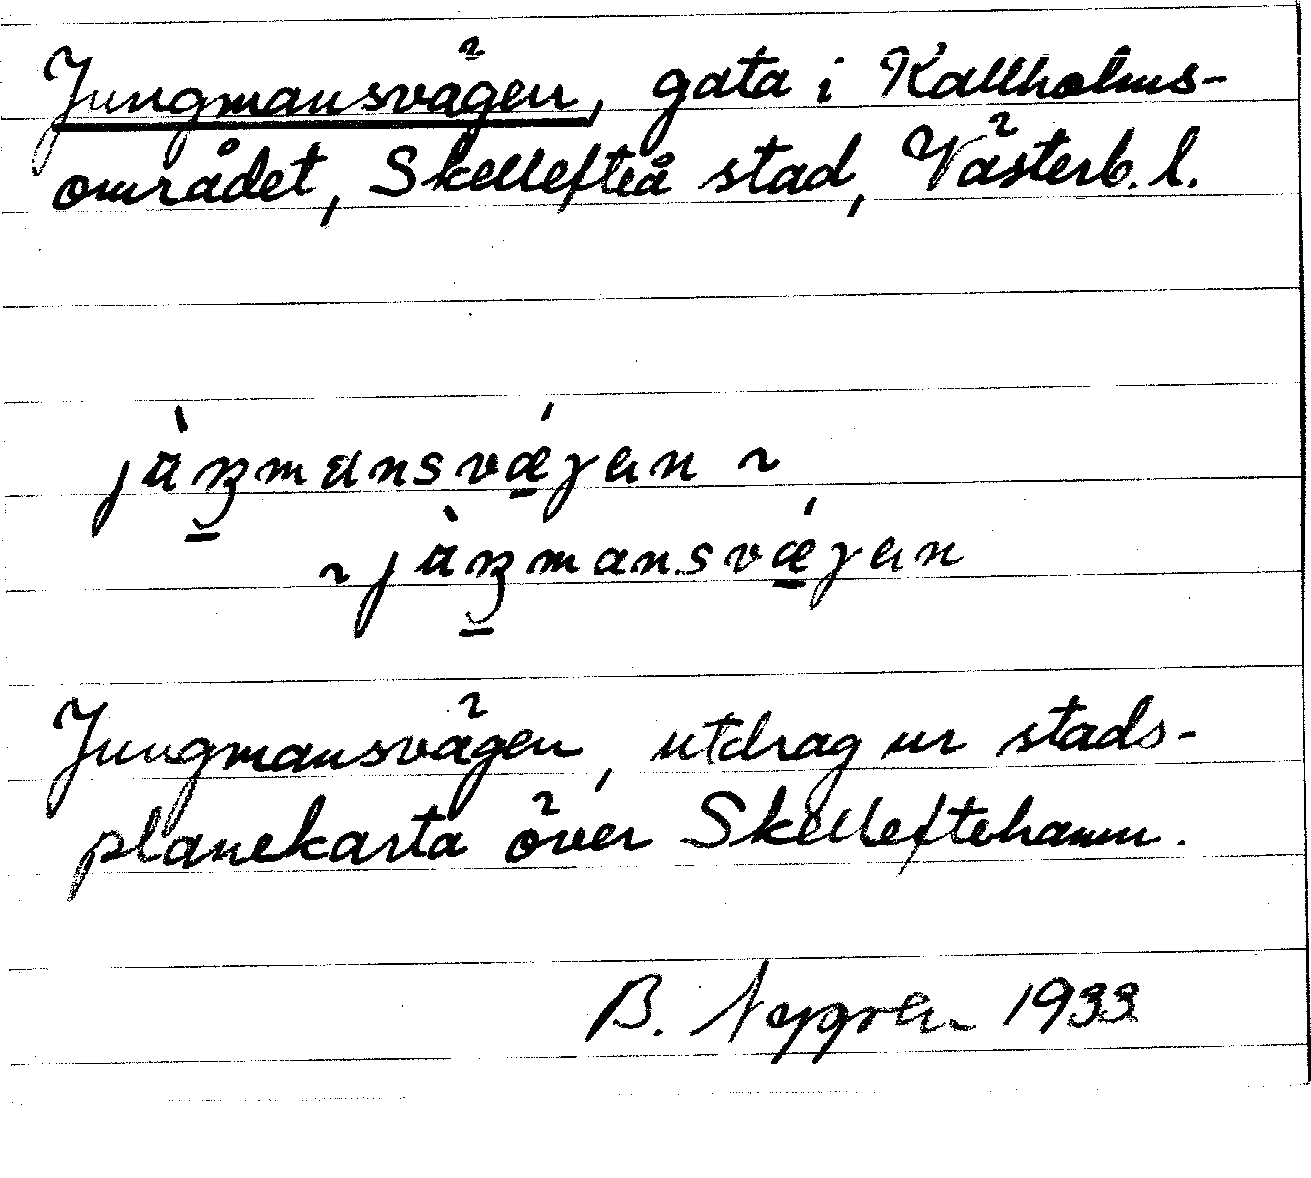 Jungmansvägen, gata i Kallholms-
området, Skellefteå stad, Västerb. l.
Jungmansvägen, utdrag ur stads-
planekarta över Skelleftehamn.
B. Nygren 1933